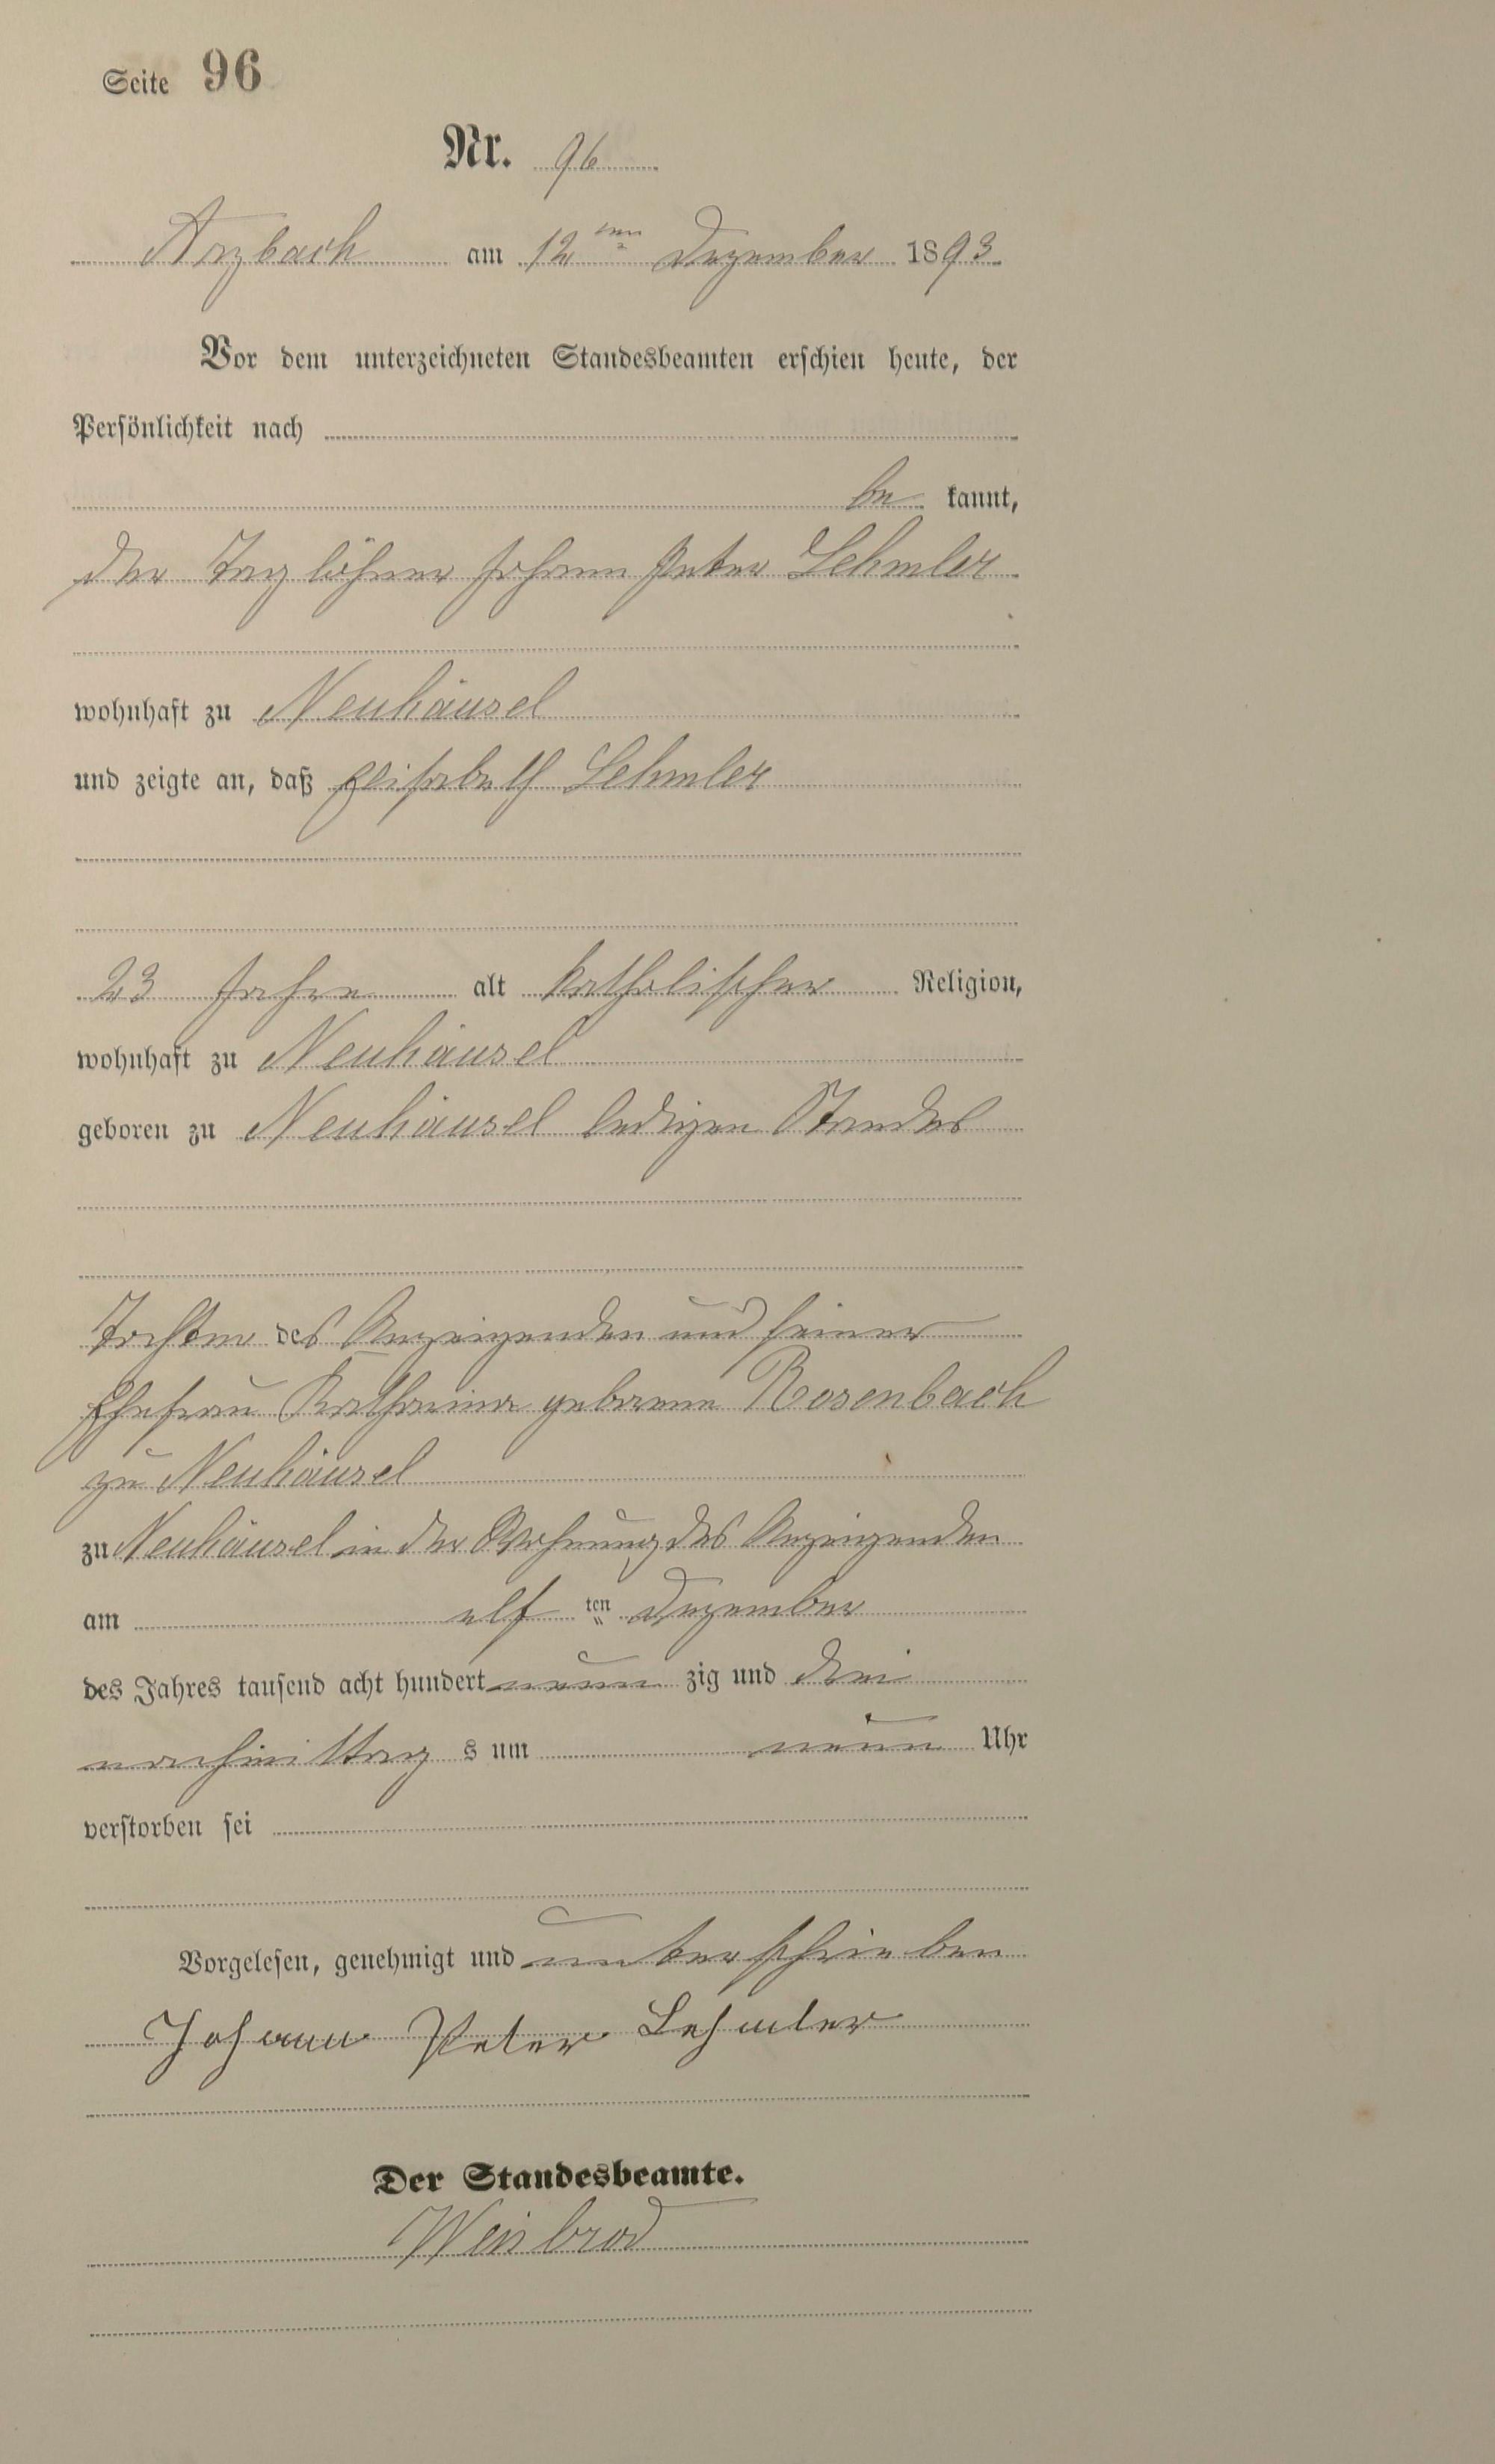 Seite 96
Nr. 96
Arzbach am 12ten Dezember 1893.
Vor dem unterzeichneten Standesbeamten erschien heute, der
Persönlichkeit nach
be kannt,
der Taglöhner Johann Peter Lehmler
wohnhaft zu Neuhäusel
und zeigte an, daß Elisabeth Lehmler
23 Jahre alt katholischer Religion,
wohnhaft zu Neuhäusel
geboren zu Neuhäusel ledigen Standes
Tochter des Anzeigenden und seiner
Ehefrau Katharina geborene Rosenbach
zu Neuhäusel
zu Neuhäusel in der Wohnung des Anzeigenden
am elf ten Dezember
des Jahres tausend acht hundert neun zig und drei
nachmittag s um neun Uhr
verstorben sei
Vorgelesen, genehmigt und unterschrieben
Johann Peter Lehmler
Der Standesbeamte.
Weisbrod